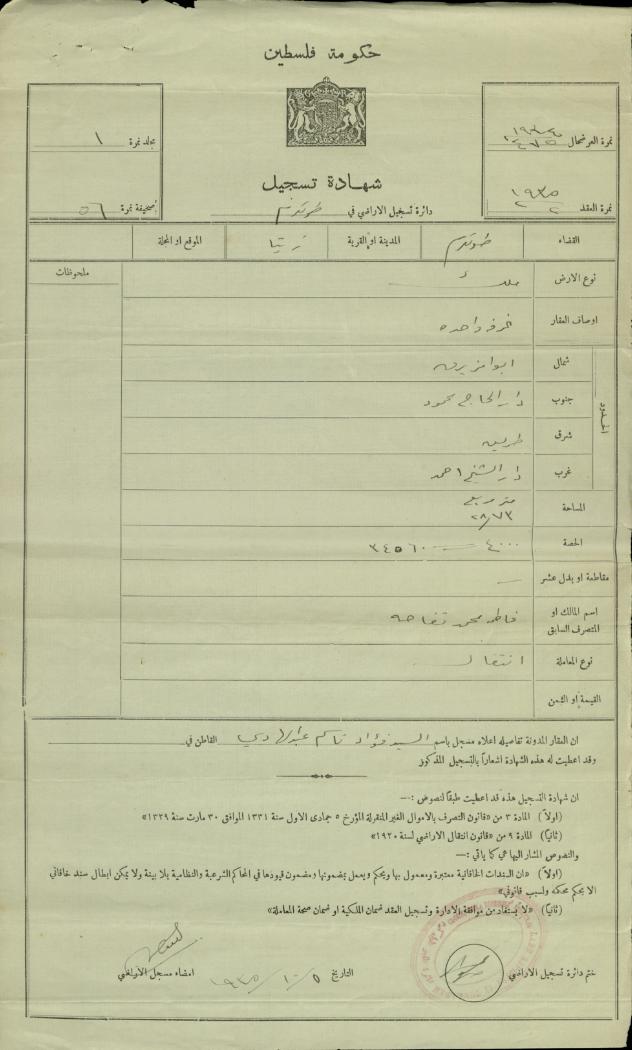 حكومة فلسطين
نمرة العرضحال
نمرة العقد ١٩٣٥
مجلد نمرة ١
صحيفة نمرة ٥٦
شهادة تسجيل
دائرة تسجيل الاراضي في طولكرم
القضاء طولكرم المدينة او القرية زيتا الموقع او المحلة
ملحوظات
نوع الارض ملك
اوصاف العقار غرفه واحده
الحدود
شمال ابو
جنوب دار الحاج محمود
شرق طريق
غرب دار الشيخ احمد
المساحة متر مربع ٢٨/٧٣
الحصة ٤٠٠٠ ٣٤٥٦٠
مقاطعة او بدل عشر
اسم المالك او المتصرف السابق فاطمه محمد
نوع المعاملة انتقال
القيمة او الثمن
ان العقار المدونة تفاصيله اعلاه مسجل باسم السيد فؤاد قاسم عبد الهادي القاطن في
وقد اعطيت له هذه الشهادة اشعاراً بالتسجيل المذكور
ان شهادة التسجيل هذه قد اعطيت طبقاً لنصوص :—
(اولاً) المادة ٣ من «قانون التصرف بالاموال الغير المنقولة المؤرخ ٥ جمادى الاول سنة ١٣٣١ الموافق ٣٠ مارت سنة ١٣٢٩»
(ثانياً) المادة ٩ من «قانون انتقال الاراضي لسنة ١٩٢٠»
والنصوص المشار اليها هي كما يأتي :—
(اولاً) «ان السندات الخاقانية معتبرة ومعمول بها ويحكم ويعمل بمضمونها ومضمون قيودها في المحاكم الشرعية والنظامية بلا بينة ولا يمكن ابطال سند خاقاني
الا بحكم محكمه ولسبب قانوني»
(ثانياً) «لا يستفاد من موافقة الادارة وتسجيل العقد ضمان الملكية او ضمان صحة المعاملة»
ختم دائرة تسجيل الاراضي
التاريخ ٥/١٠/١٩٣٥
امضاء مسجل الاراضي